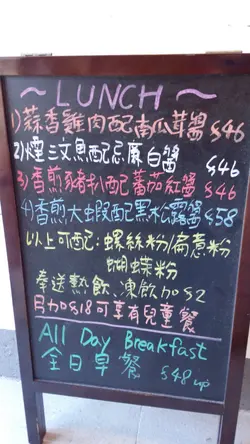 ~LUNCH~
1)蒜香雞肉配南瓜茸醬 $46
2)煙三文魚配忌廉白醬 $46
3)香煎豬扒配蕃茄紅醬 $46
4)香煎大蝦配黑松露醬 $58
以上可配:螺絲粉/扁意粉
蝴蝶粉
奉送熱飲,凍飲加$2
另加$18可享有兒童餐
All Day Breakfast
全日早餐 $48 up